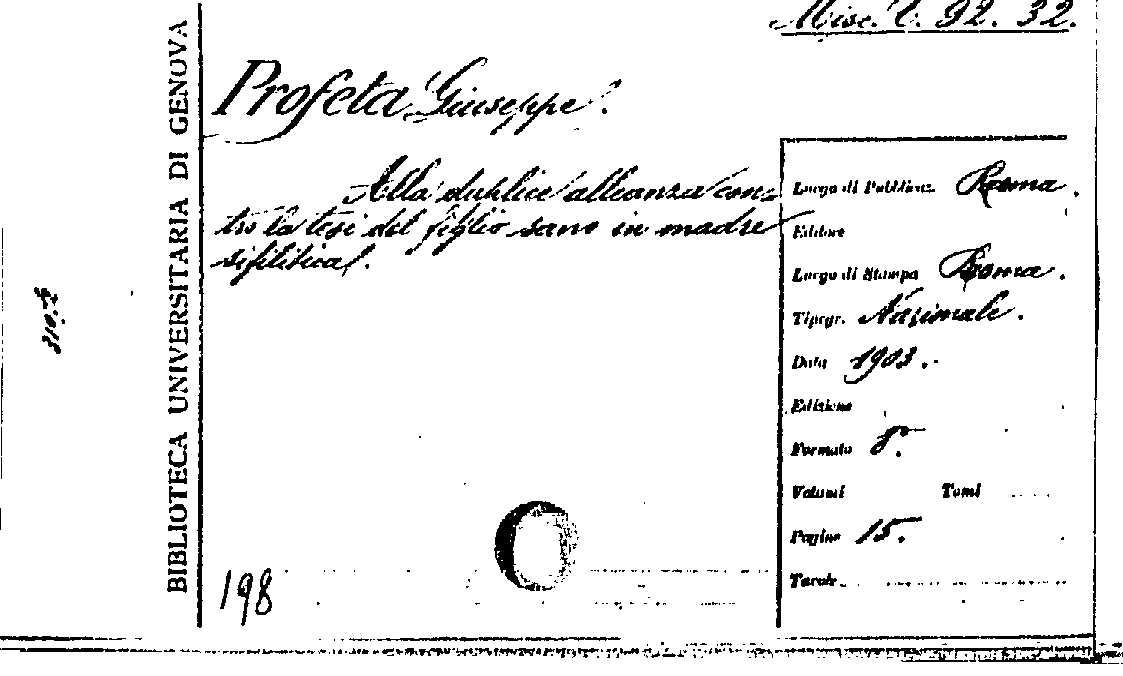 Misc. C. 92. 32.
BIBLIOTECA UNIVERSITARIA DI GENOVA
Profeta Giuseppe.
Alla duplice alleanza con-
tro la tesi del figlio sano in madre
sifilitica.
Luogo di Pubblicaz. Roma.
Editore
Luogo di Stampa Roma.
Tipogr. Nazionale.
Data 1903.
Edizione
Formato 8°.
Volumi Tomi
Pagine 15.
Tavole
198